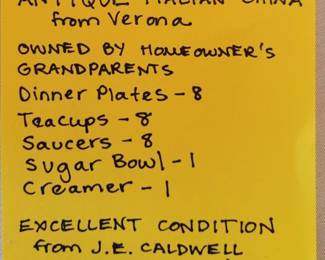 ANTIQUE ITALIAN CHINA
from Verona
OWNED BY HOMEOWNER'S
GRANDPARENTS
Dinner Plates - 8
Teacups - 8
Saucers - 8
Sugar Bowl - 1
Creamer - 1
EXCELLENT CONDITION
from J.E. CALDWELL